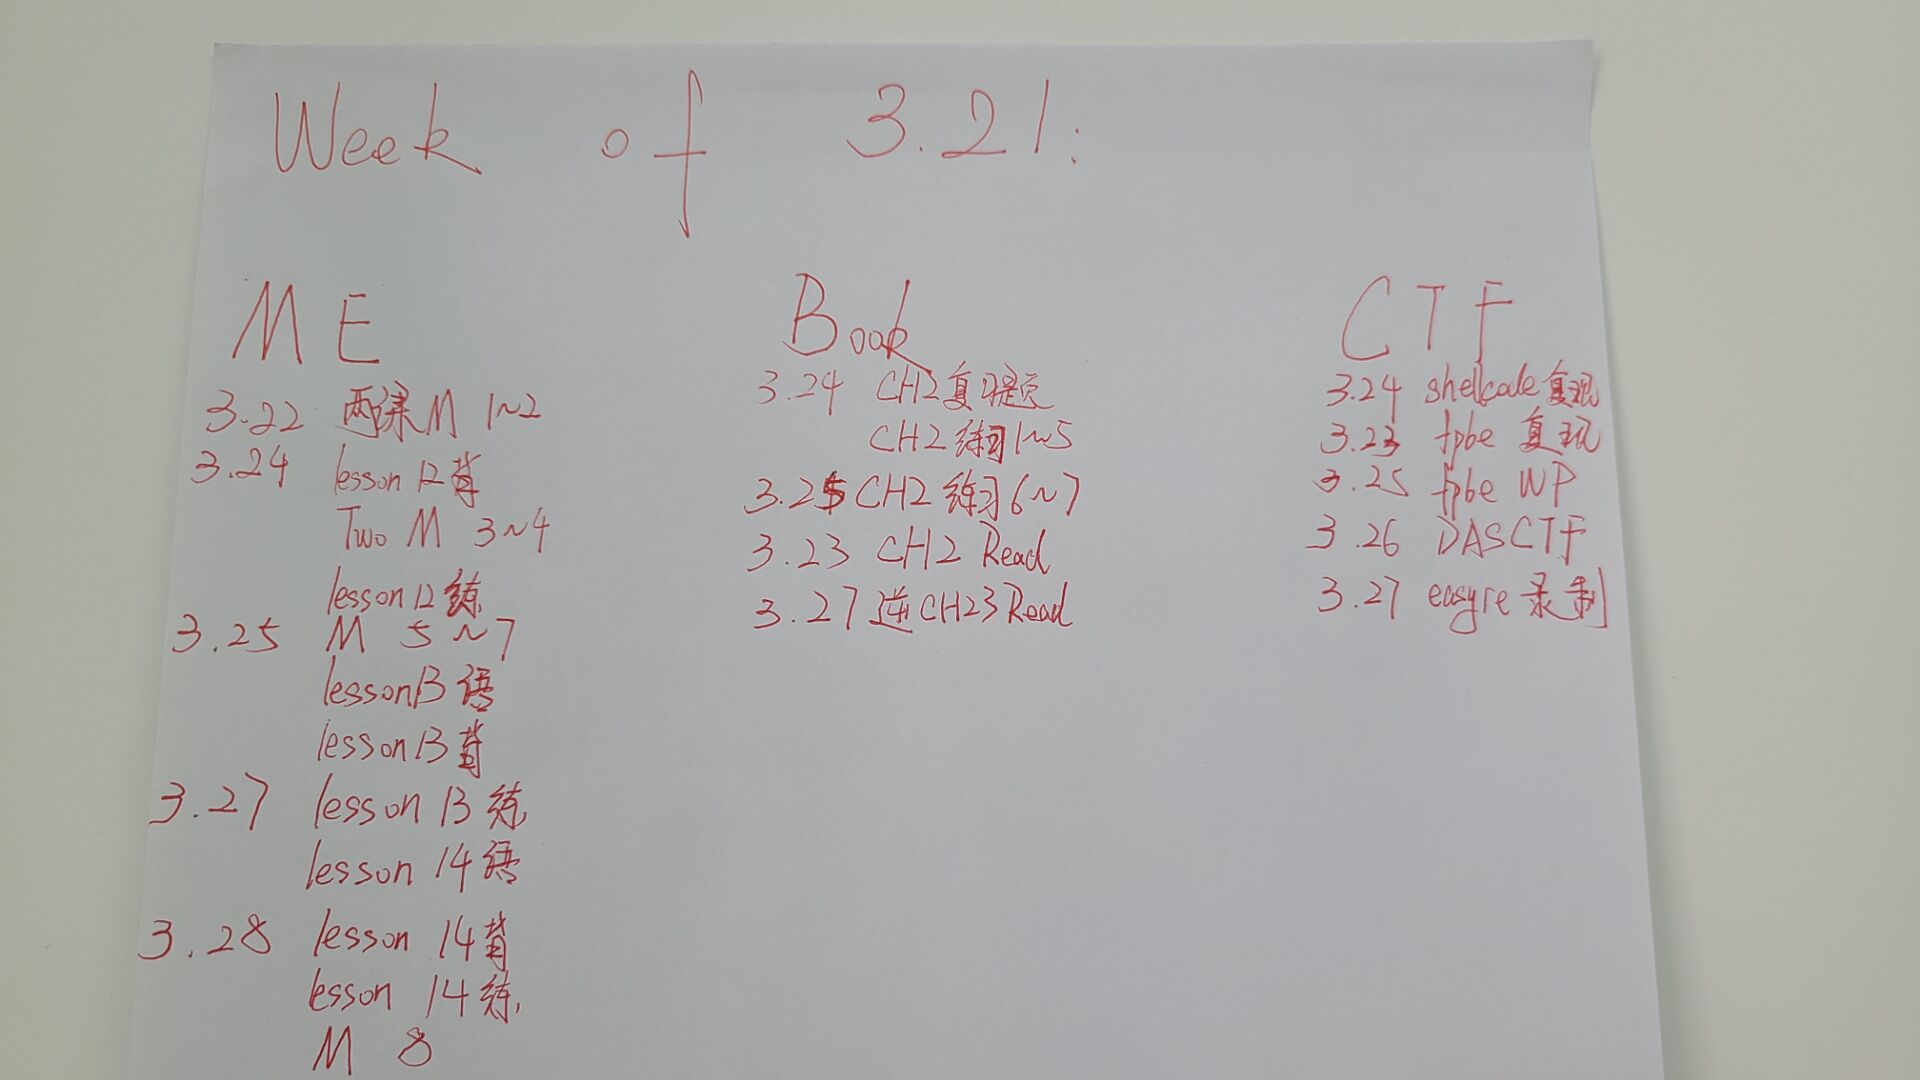 Week of 3.21:
ME
3.22 两课M 1~2
3.24 lesson 12背
Two M 3~4
lesson 12练
3.25 M 5~7
lesson13 语
lesson 13 背
3.27 lesson 13 练
lesson 14 语
3.28 lesson 14 背
lesson 14 练
M 8
Book
3.24 CH2复习题
CH2 练习1~5
3.25 CH2 练习6~7
3.23 CH2 Read
3.27 逆CH23 Read
CTF
3.24 shellcode复现
3.23 fpbe 复现
3.25 fpbe WP
3.26 DASCTF
3.27 easyre 录制